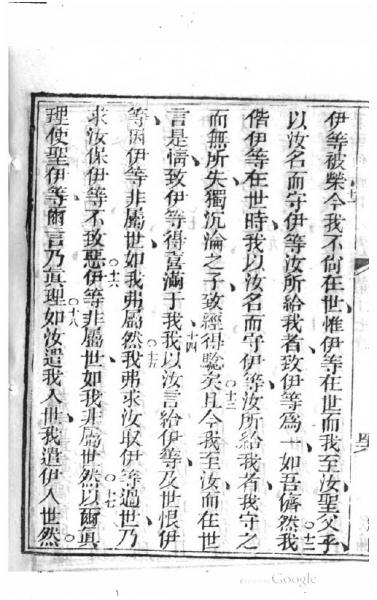 伊等被榮今我不尙在世惟伊等在世而我至汝聖父乎
十一
以汝名而守伊等汝所給我者致伊等爲一如吾儕然我
〇十二
偕伊等在世時我以汝名而守伊等汝所給我者我守之
而無所失獨沉淪之子致經得驗矣且今我至汝而在世
〇十三
言是情致伊等得喜滿于我我以汝言給伊等及世恨伊
十四
等因伊等非屬世如我弗屬然我弗求汝取伊等過世乃
〇十五
求汝保伊等不致惡伊等非屬世如我非屬世然以爾眞
〇十六
〇十七
理使聖伊等爾言乃眞理如汝遣我入世我遣伊入世然
〇十八
〇
Google